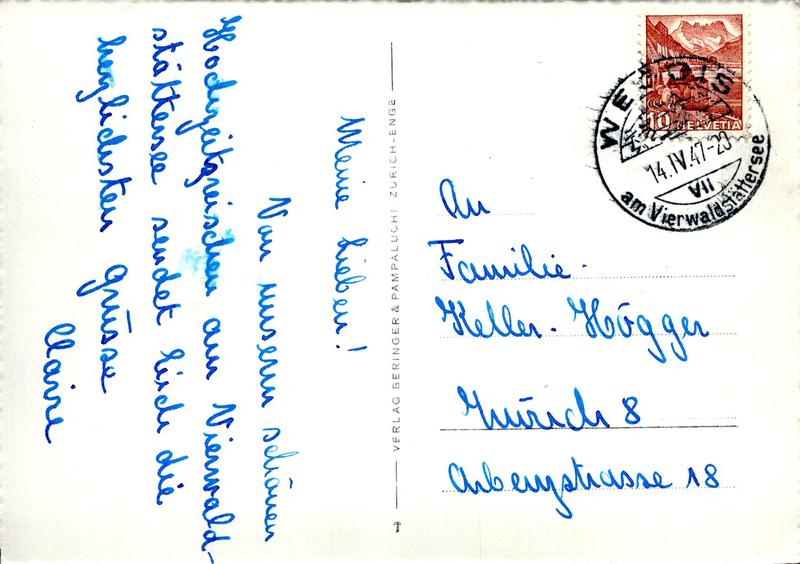 Meine Lieben!
Von unserm schönen
Hochzeitsreischen am Vierwald-
stättersee sendet Euch die
herzlichsten Grüsse
Claire
VERLAG BERINGER & PAMPALUCHI ZÜRICH-ENGE
10 HELVETIA
WEGGIS
14.IV.47-20
VII
am Vierwaldstättersee
An
Familie
Keller-Högger
Zürich 8
Arbenzstrasse 18